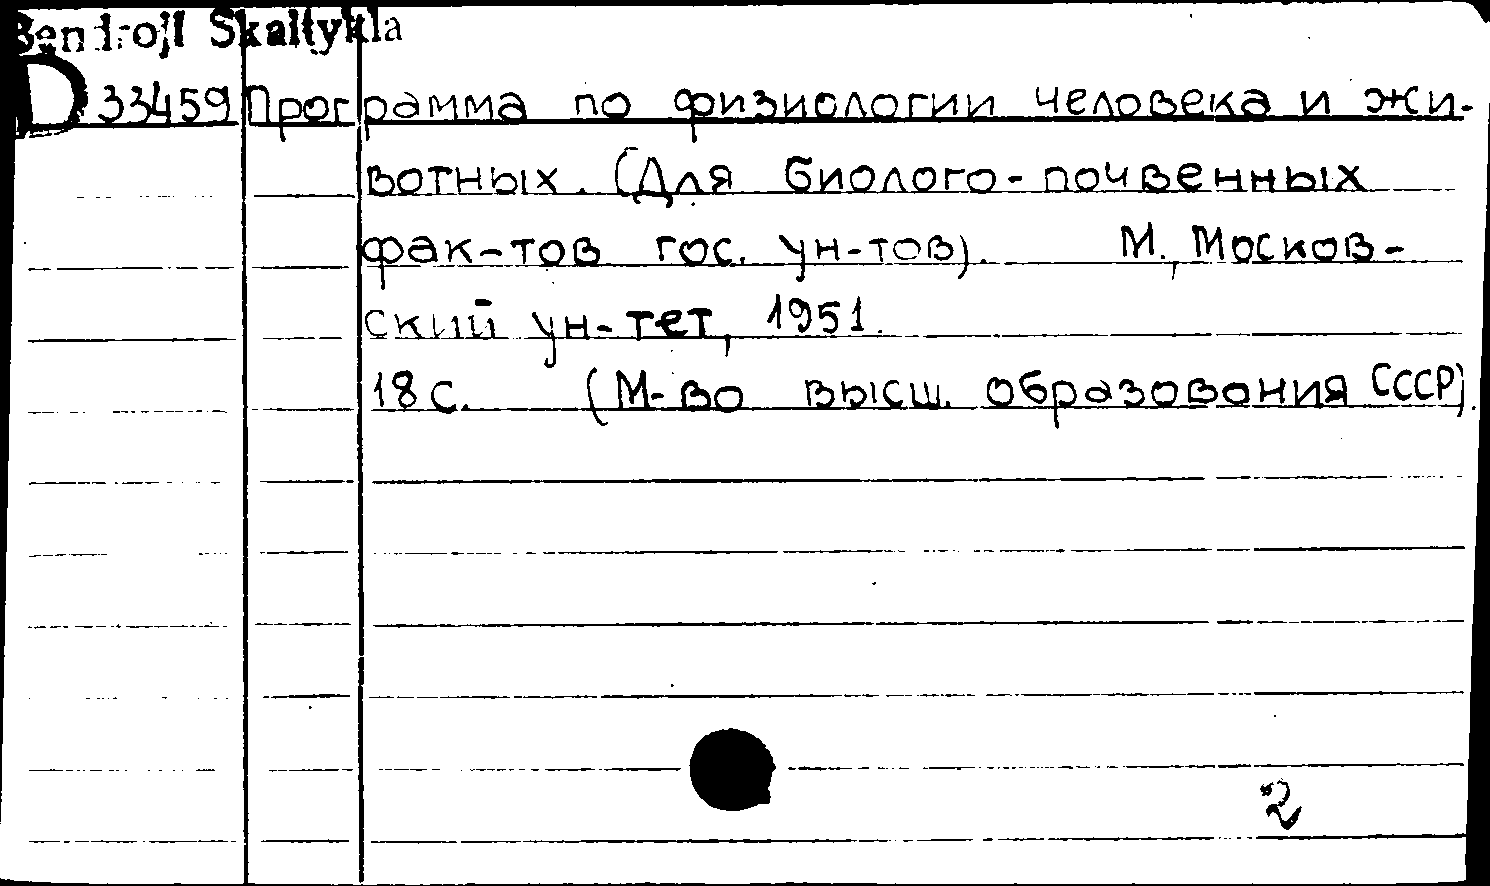 Bendroji Skaitykla
D 33459 Программа по физиологии человека и жи-
вотных. (Для биолого-почвенных
фак-тов гос. ун-тов). М., Москов-
ский ун-тет, 1951.
18 с. (М-во высш. образования СССР).
2